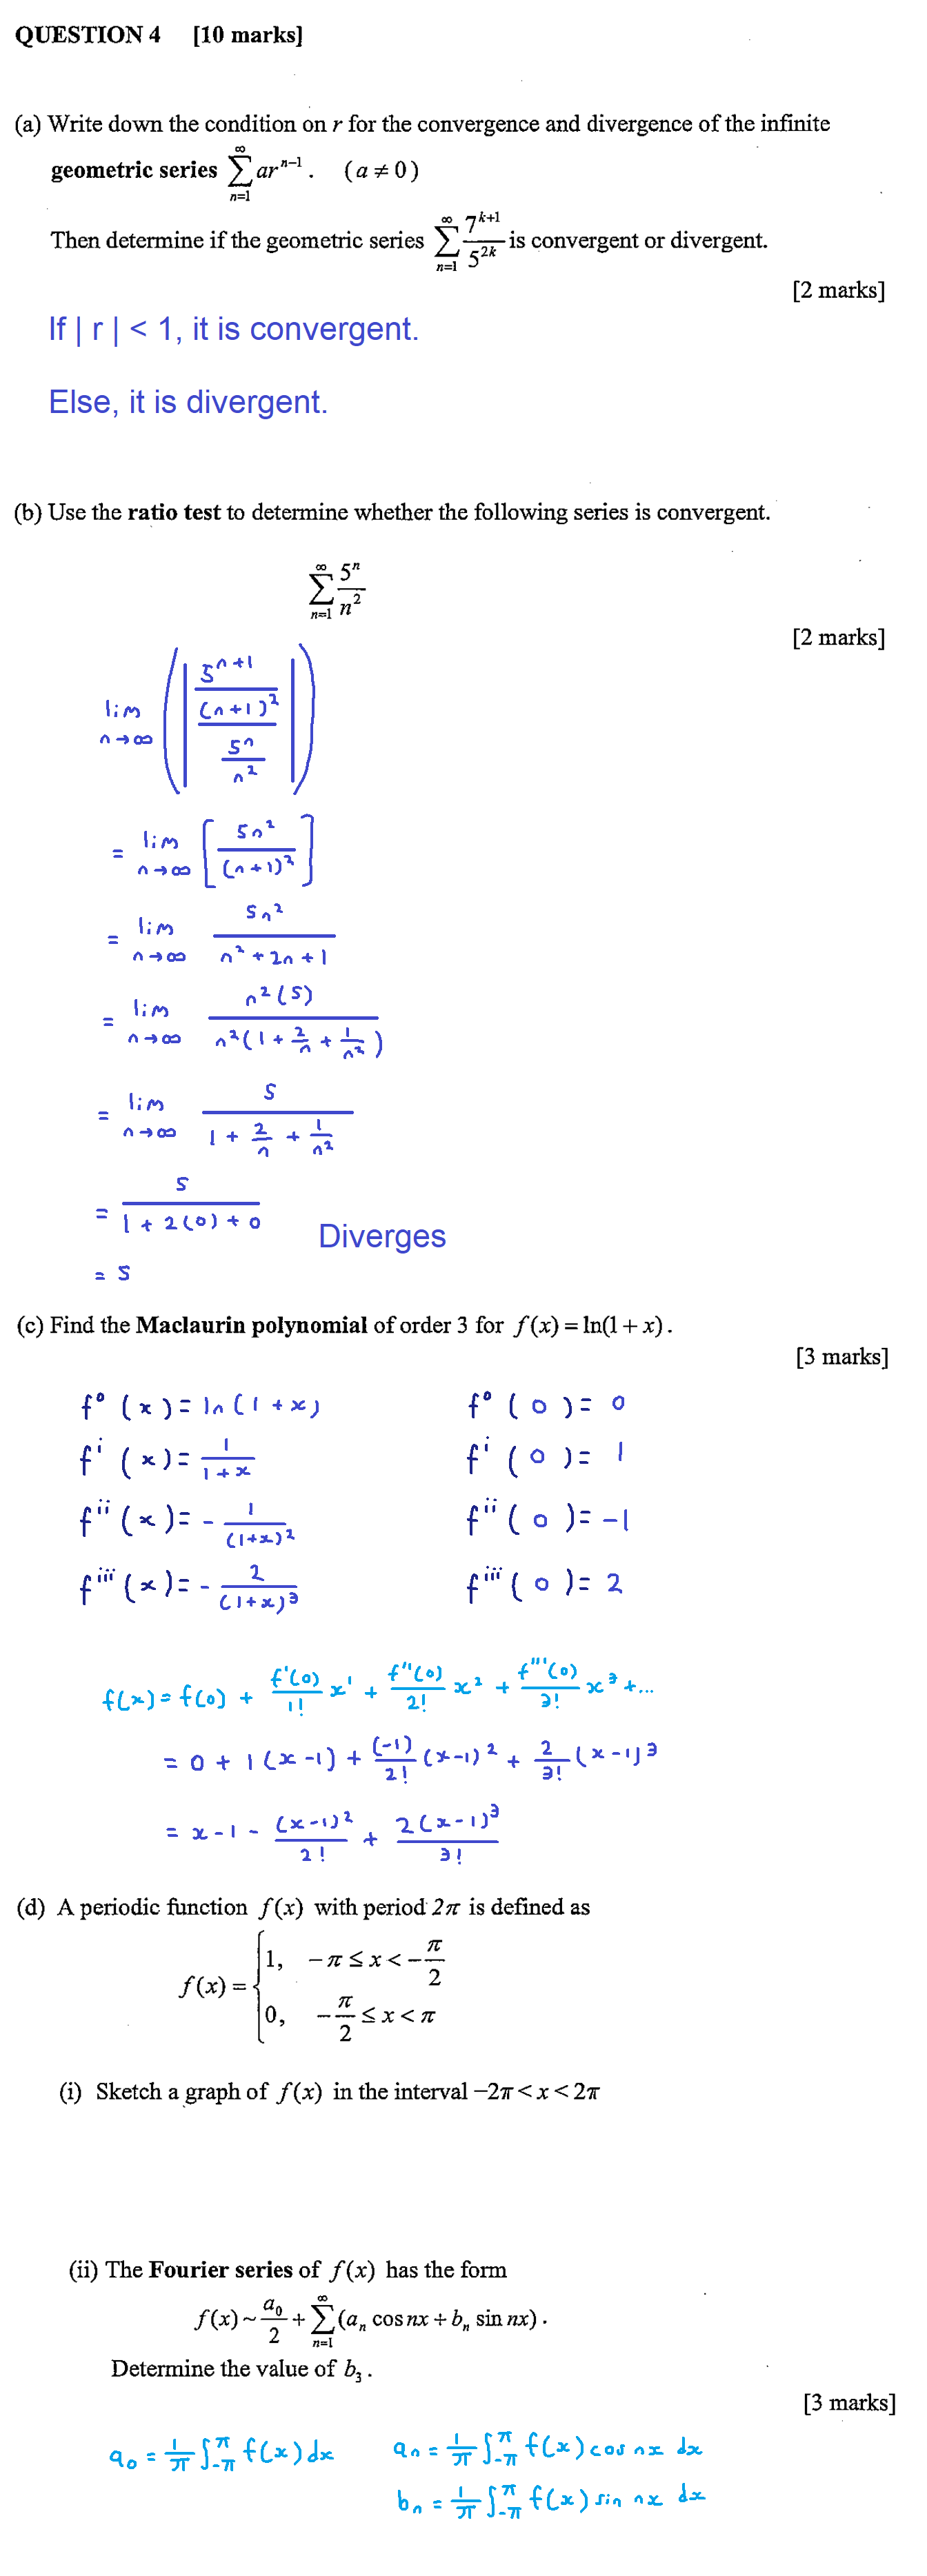 QUESTION 4 [10 marks]
(a) Write down the condition on r for the convergence and divergence of the infinite
geometric series ∑_{n=1}^{∞} ar^{n-1}. (a ≠ 0)
Then determine if the geometric series ∑_{n=1}^{∞} 7^{k+1}/5^{2k} is convergent or divergent.
[2 marks]
If | r | < 1, it is convergent.
Else, it is divergent.
(b) Use the ratio test to determine whether the following series is convergent.
∑_{n=1}^{∞} 5^n/n^2
[2 marks]
lim n→∞ (| (5^{n+1}/(n+1)^2) / (5^n/n^2) |)
= lim n→∞ [5n^2/(n+1)^2]
= lim n→∞ 5n^2/(n^2+2n+1)
= lim n→∞ n^2(5)/(n^2(1+2/n+1/n^2))
= lim n→∞ 5/(1+2/n+1/n^2)
= 5/(1+2(0)+0)
Diverges
= 5
(c) Find the Maclaurin polynomial of order 3 for f(x) = ln(1+x).
[3 marks]
f°(x) = ln(1+x) f°(0) = 0
f^i(x) = 1/(1+x) f^i(0) = 1
f^ii(x) = -1/(1+x)^2 f^ii(0) = -1
f^iii(x) = -2/(1+x)^3 f^iii(0) = 2
f(x) = f(0) + f'(0)/1! x^1 + f''(0)/2! x^2 + f'''(0)/3! x^3 +...
= 0 + 1(x-1) + (-1)/2! (x-1)^2 + 2/3! (x-1)^3
= x-1 - (x-1)^2/2! + 2(x-1)^3/3!
(d) A periodic function f(x) with period 2π is defined as
f(x) = { 1, -π ≤ x < -π/2
0, -π/2 ≤ x < π
(i) Sketch a graph of f(x) in the interval -2π < x < 2π
(ii) The Fourier series of f(x) has the form
f(x) ~ a_0/2 + ∑_{n=1}^{∞} (a_n cos nx + b_n sin nx).
Determine the value of b_3.
[3 marks]
a_0 = 1/π ∫_{-π}^{π} f(x) dx a_n = 1/π ∫_{-π}^{π} f(x) cos nx dx
b_n = 1/π ∫_{-π}^{π} f(x) sin nx dx